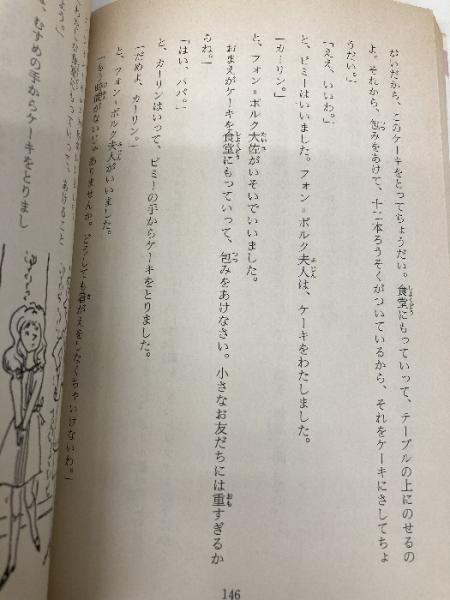 ねがいだから、このケーキをとってちょうだい。食堂にもっていって、テーブルの上にのせるの
よ。それから、包みをあけて、十二本ろうそくがついているから、それをケーキにさしてちょ
うだい。」
「ええ、いいわ。」
と、ピミーはいいました。フォン=ボルク夫人は、ケーキをわたしました。
「カーリン。」
と、フォン=ボルク大佐がいそいでいいました。
おまえがケーキを食堂にもっていって、包みをあけなさい。小さなお友だちには重すぎるか
らね。」
「はい、パパ。」
と、カーリンはいって、ピミーの手からケーキをとりました。
「だめよ、カーリン。」
と、フォン=ボルク夫人がいいました。
「もう時間がないじゃありませんか。どうしても着がえをしなくちゃいけないわ。」
146
むすめの手からケーキをとりまし